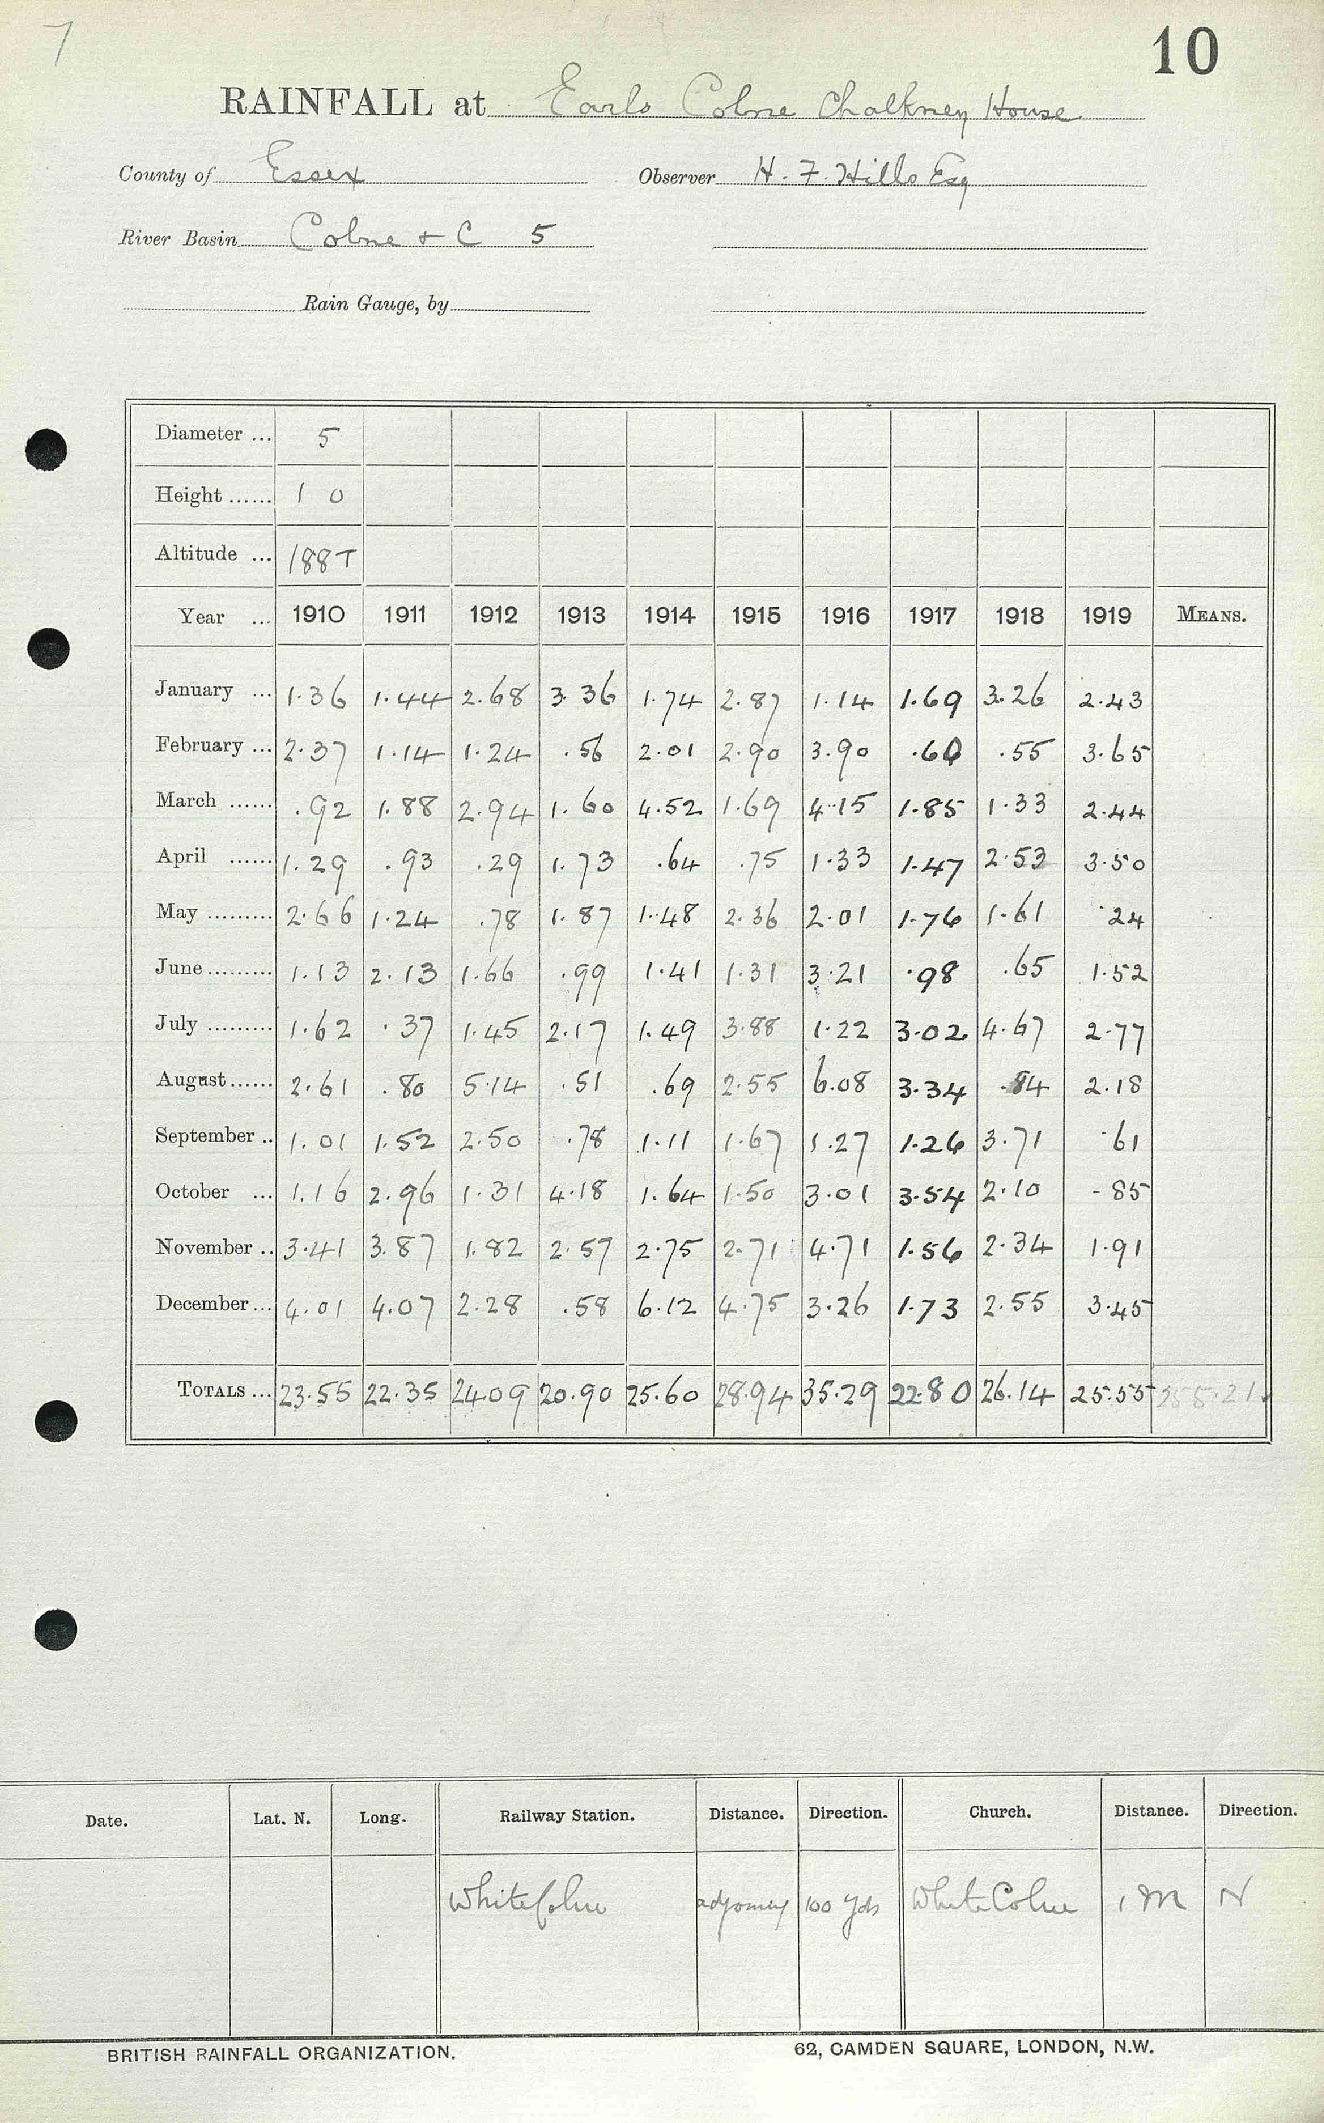 7
10
RAINFALL at Earls Colne Chalkney House
County of Essex Observer H. F. Hills Esq
River Basin Colne & C 5
Rain Gauge, by
Diameter ... 5
Height ...... 1 0
Altitude ... 188T
Year ... 1910 1911 1912 1913 1914 1915 1916 1917 1918 1919 MEANS.
January ... 1.36 1.44 2.68 3.36 1.74 2.87 1.14 1.69 3.26 2.43
February ... 2.37 1.14 1.24 .56 2.01 2.90 3.90 .60 .55 3.65
March ...... .92 1.88 2.94 1.60 4.52 1.69 4.15 1.85 1.33 2.44
April ...... 1.29 .93 .29 1.73 .64 .75 1.33 1.47 2.53 3.50
May ......... 2.66 1.24 .78 1.87 1.48 2.36 2.01 1.76 1.61 .24
June ......... 1.13 2.13 1.66 .99 1.41 1.31 3.21 .98 .65 1.52
July ......... 1.62 .37 1.45 2.17 1.49 3.88 1.22 3.02 4.67 2.77
August ...... 2.61 .80 5.14 .51 .69 2.55 6.08 3.34 .84 2.18
September .. 1.01 1.52 2.50 .78 1.11 1.67 1.27 1.26 3.71 .61
October ... 1.16 2.96 1.31 4.18 1.64 1.50 3.01 3.54 2.10 .85
November .. 3.41 3.87 1.82 2.57 2.75 2.71 4.71 1.56 2.34 1.91
December ... 4.01 4.07 2.28 .58 6.12 4.75 3.26 1.73 2.55 3.45
TOTALS ... 23.55 22.35 24.09 20.90 25.60 28.94 35.29 22.80 26.14 25.55 255.21
Date. Lat. N. Long. Railway Station. Distance. Direction. Church. Distance. Direction.
White Colne adjoining 100 yds White Colne 1 M N
BRITISH RAINFALL ORGANIZATION. 62, CAMDEN SQUARE, LONDON, N.W.